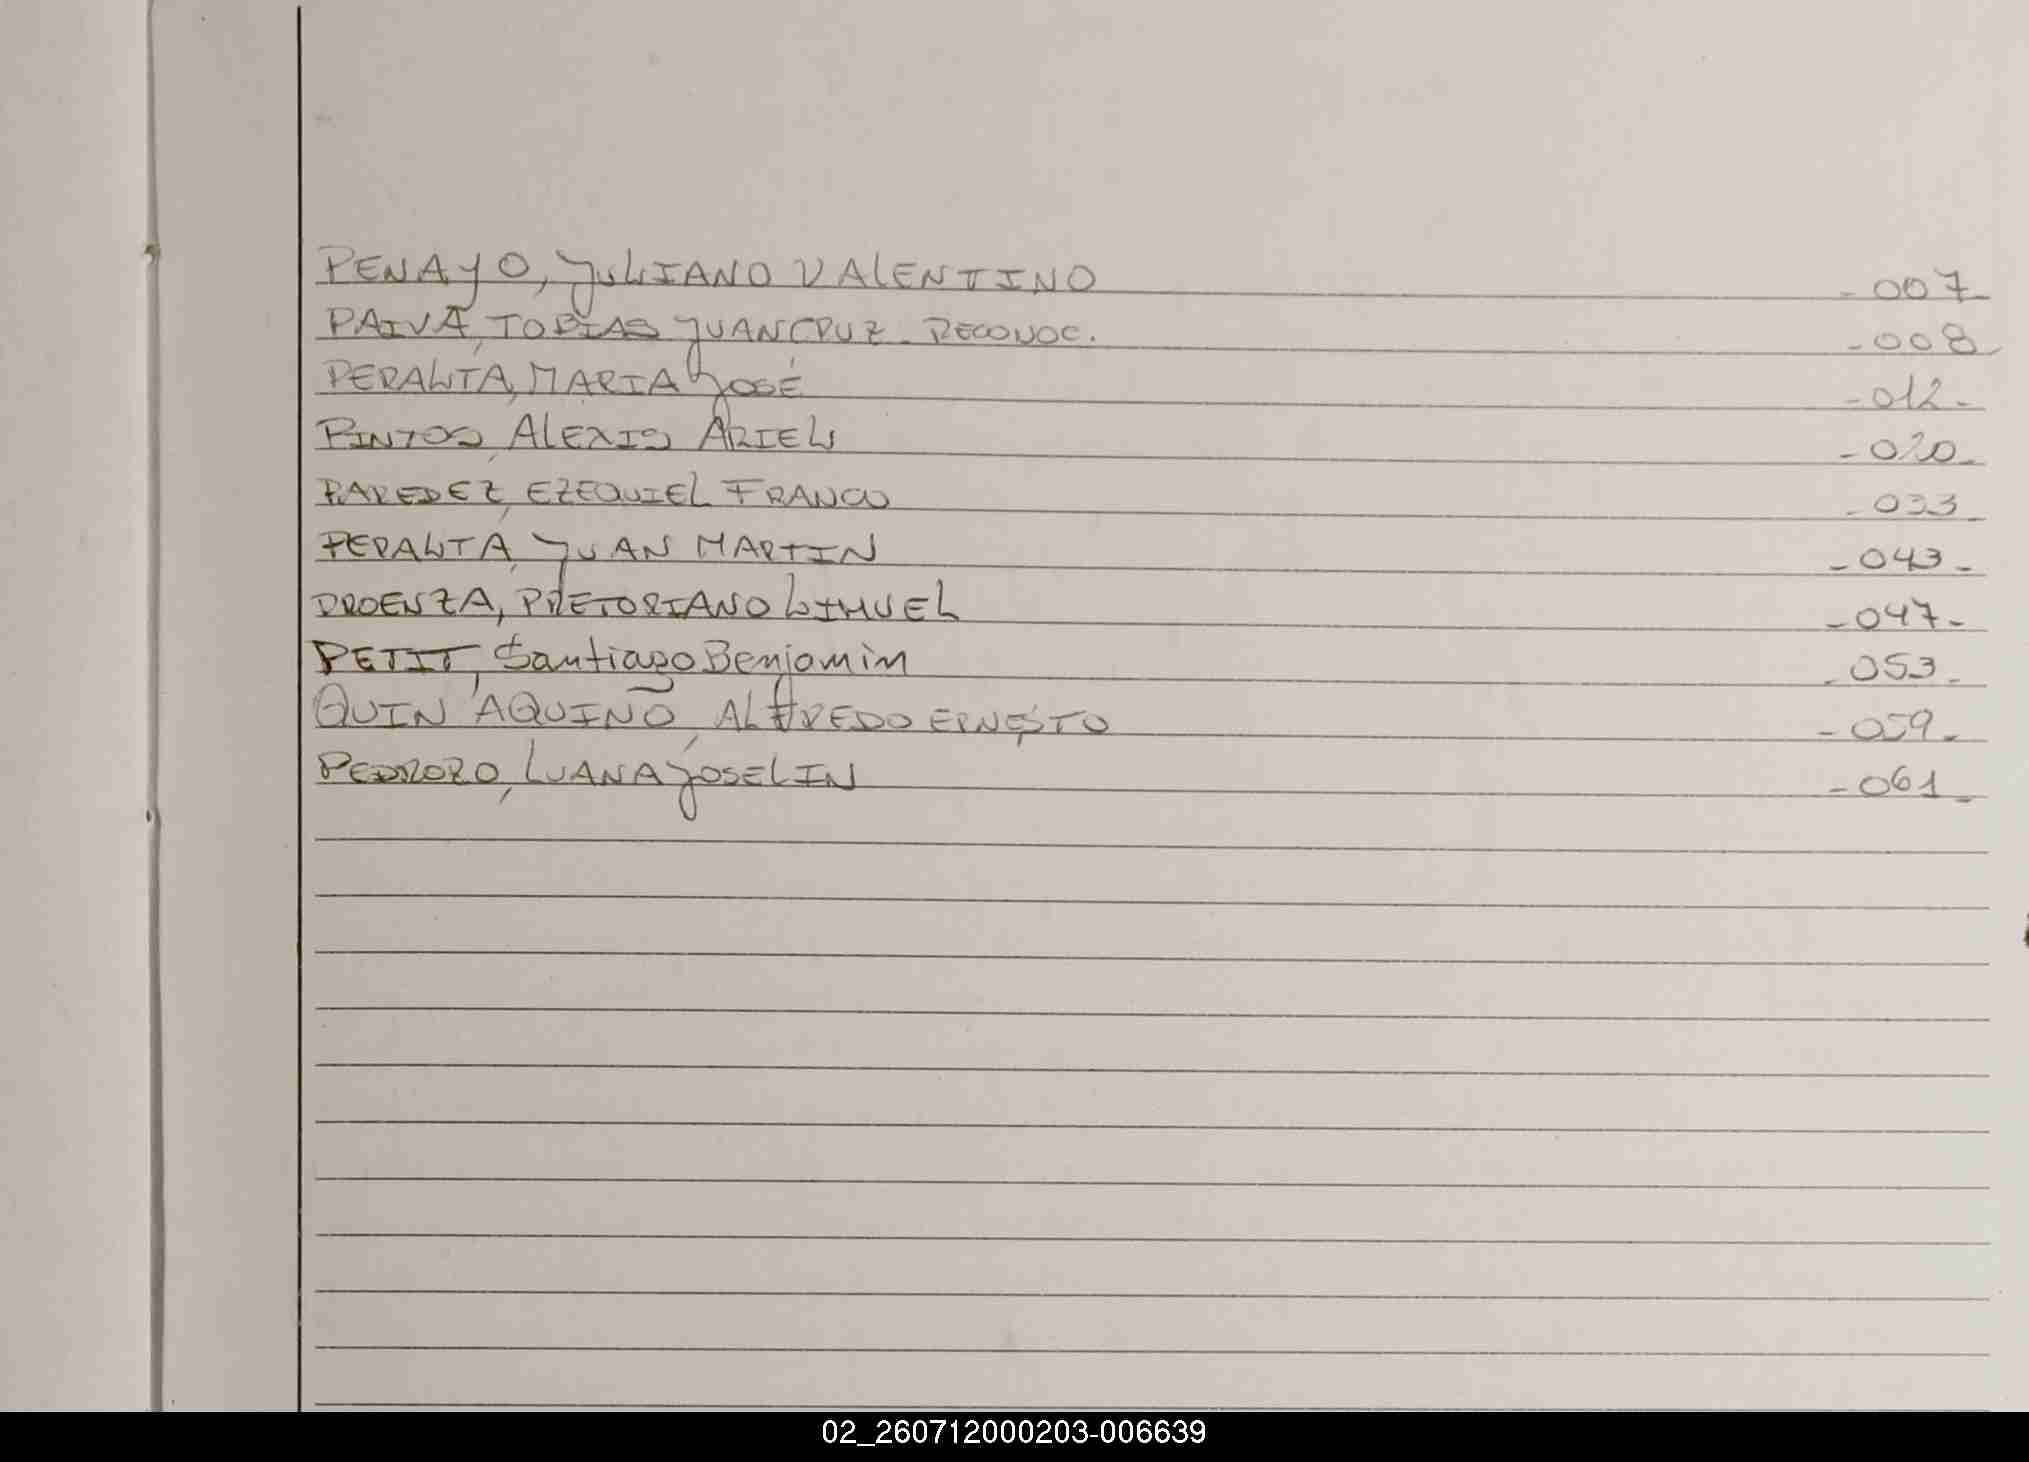 PENAYO, JULIANO VALENTINO -007-
PAIVA, TOBIAS JUAN CRUZ - RECONOC. -008-
PERALTA, MARIA JOSÉ -012-
PINTOS, ALEXIS ARIEL -020-
PAREDEZ, EZEQUIEL FRANCO -033-
PERALTA, JUAN MARTIN -043-
PROENZA, PRETORIANO LIHUEL -047-
PETIT, Santiago Benjamin -053-
QUIN AQUIÑO, ALFREDO ERNESTO -059-
PEDROZO, LUANA JOSELIN -061-
02_260712000203-006639